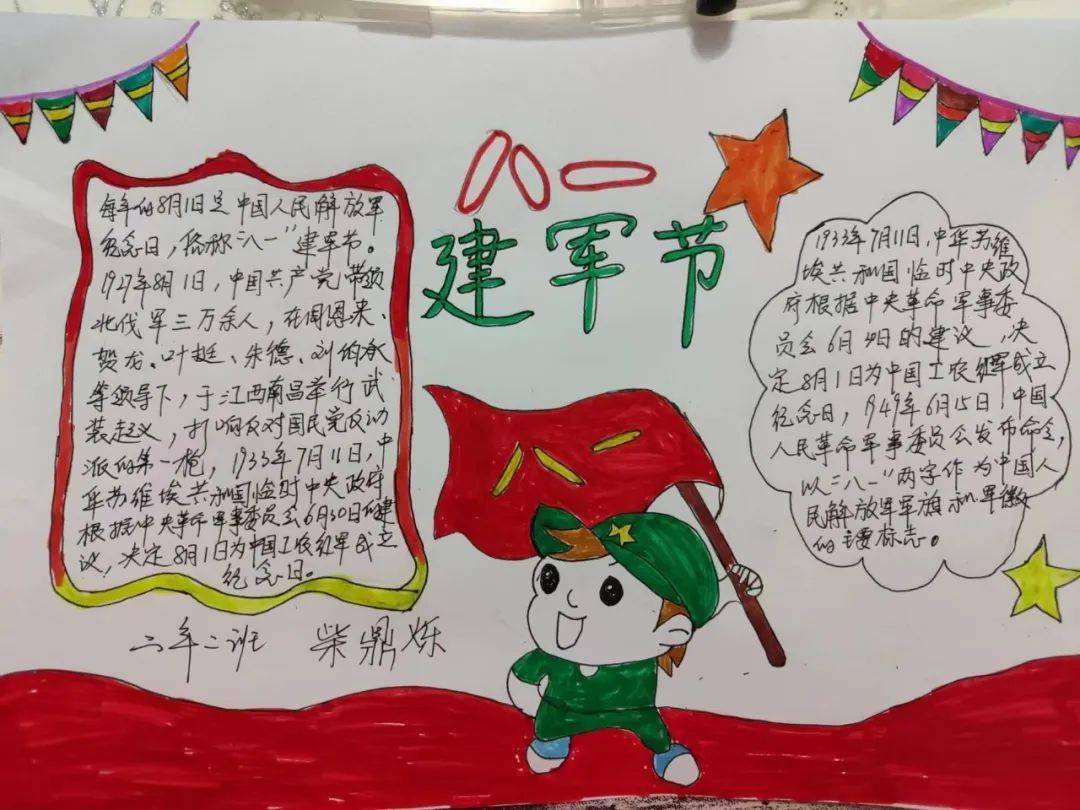 八一
建军节
每年的8月1日是中国人民解放军
纪念日，俗称"八一"建军节。
1927年8月1日，中国共产党带领
北伐军三万余人，在周恩来、
贺龙、叶挺、朱德、刘伯承
等领导下，于江西南昌举行武
装起义，打响反对国民党反动
派的第一枪，1933年7月11日，中
华苏维埃共和国临时中央政府
根据中央革命军事委员会6月30日的建
议，决定8月1日为中国工农红军成立
纪念日。
二年二班 柴鼎烁
八一
1933年7月11日，中华苏维
埃共和国临时中央政
府根据中央革命军事委
员会6月 日的建议，决
定8月1日为中国工农红军成立
纪念日，1949年6月15日，中国
人民革命军事委员会发布命令，
以"八一"两字作为中国人
民解放军军旗和军徽
的主要标志。